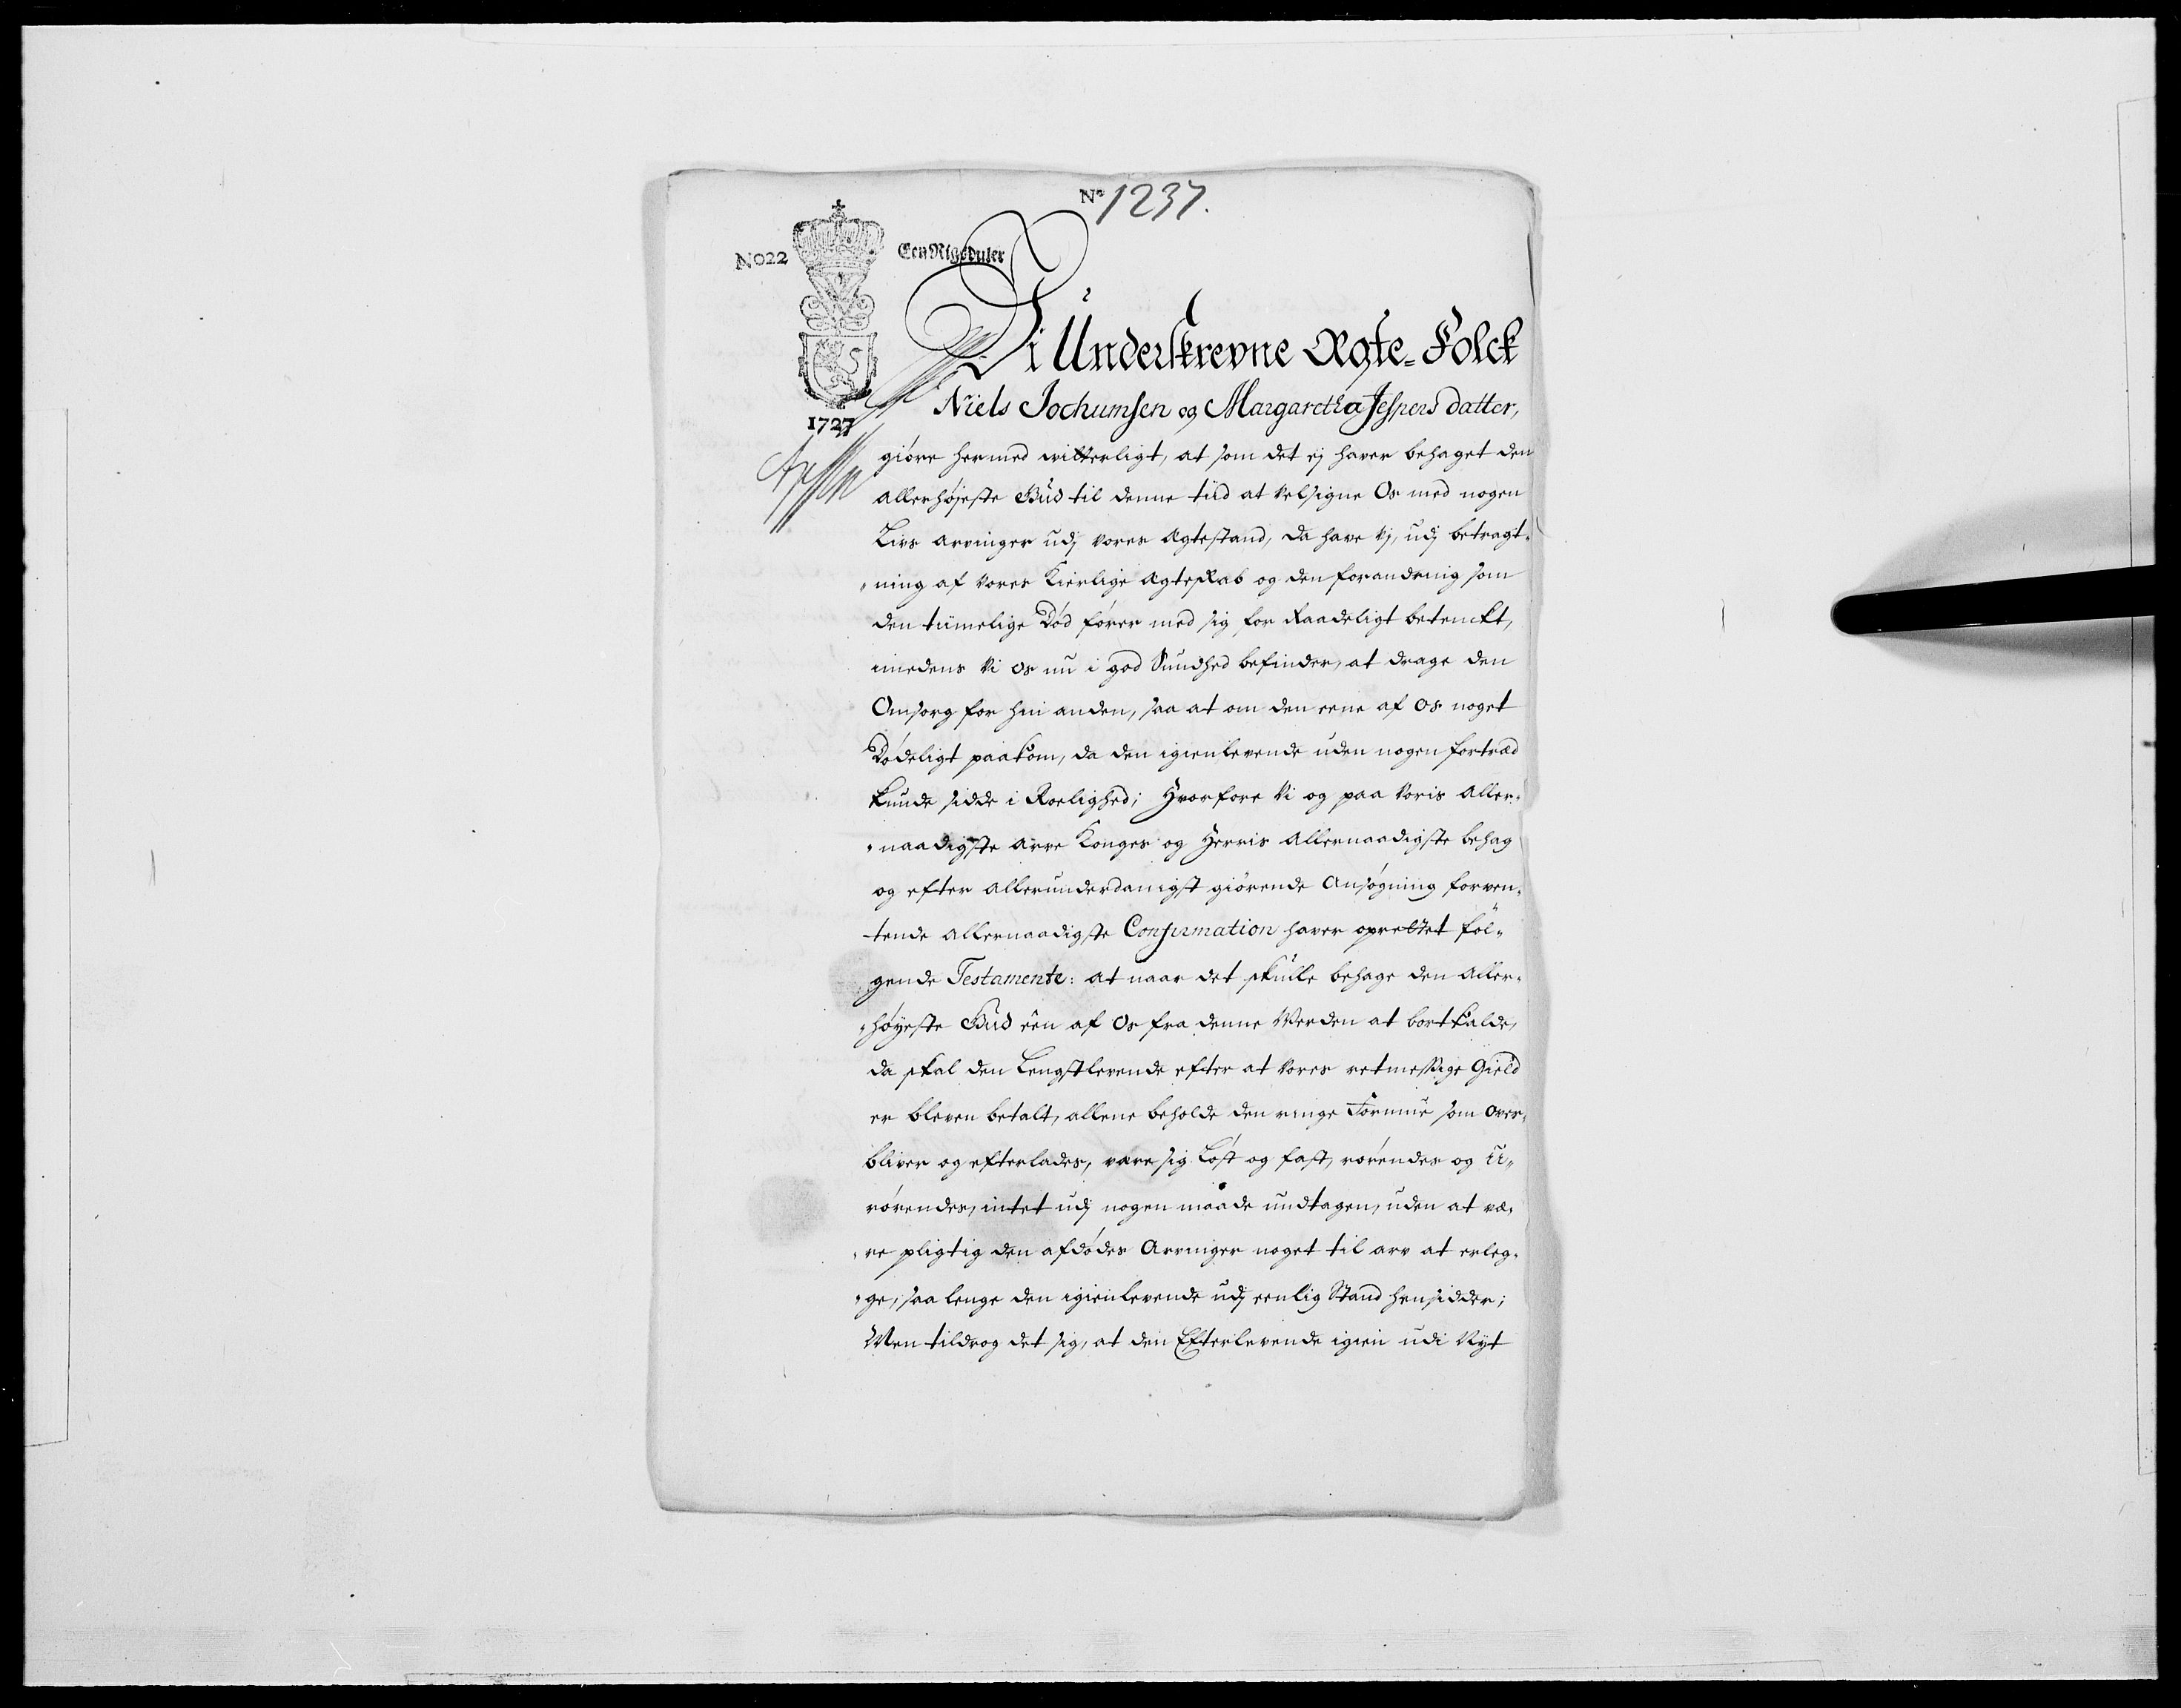 No 1237.
No 22
Een Rigsdaler
1727
Vi Underskrevne Ægte-Folck
Niels Jochumsen og Margaretha Jespers datter,
giöre hermed witterligt, at som det ej haver behaget den
allerhøjeste Gud til denne tiid at velsigne Os med nogen
Livs arvinger udj vores ægtestand, da have Vj, udj betragt-
ning af vores kierlige ægteskab og den forandring som
den timelige Död förer med sig for Raadeligt betenckt,
imedens Vi os nu i god Sundhed befinder, at drage den
Omsorg for hin anden, saa at om den eene af os noget
Dödeligt paakom, da den igienlevende uden nogen fortræd
kunde sidde i Roelighed; Hvorfore Vi og paa voris Aller-
naadigste arve Konges og Herris Allernaadigste behag
og efter allerunderdanigst giörende Ansögning forven-
tende allernaadigste Confirmation haver oprettet föl-
gende Testamente: at naar det skulle behage den Aller-
höyeste Gud een af Os fra denne Werden at bortkalde,
da skal den Lengstlevende efter at vores retmessige Gield
er bleven betalt, allene beholde den ringe Formue som over-
bliver og efterlades, være sig Löst og fast, rörendes og U-
rörendes, intet udj nogen maade undtagen, uden at væ-
re pligtig den afdödes Arvinger noget til arv at erleg-
ge, saa lenge den igienlevende udj eenlig Stand hensidder;
Men tildrog det sig, at den Efterlevende igien udi Nyt